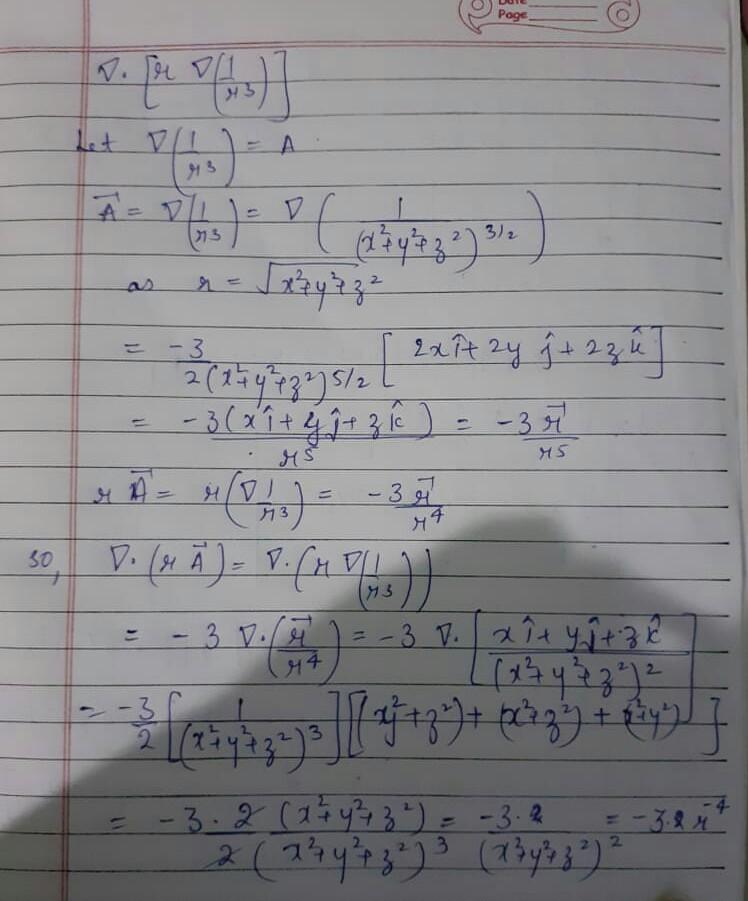 Date
Page
∇·[r ∇(1/r3)]
Let ∇(1/r3) = A
A⃗ = ∇(1/r3) = ∇(1/(x²+y²+z²)3/2)
as r = √x²+y²+z²
= -3/2(x²+y²+z²)5/2 [2xî+2y ĵ+2z k̂]
= -3(xî+yĵ+zk̂)/r5 = -3r⃗/r5
r A⃗ = r(∇1/r3) = -3r⃗/r4
so, ∇·(r A⃗) = ∇·(r ∇(1/r3))
= -3 ∇·(r⃗/r4) = -3 ∇·[xî+yĵ+zk̂/(x²+y²+z²)2]
= -3/2 [1/(x²+y²+z²)3] [(y²+z²)+(x²+z²)+(x²+y²)]
= -3·2(x²+y²+z²)/2(x²+y²+z²)3 = -3·2/(x²+y²+z²)2 = -3·2 r-4